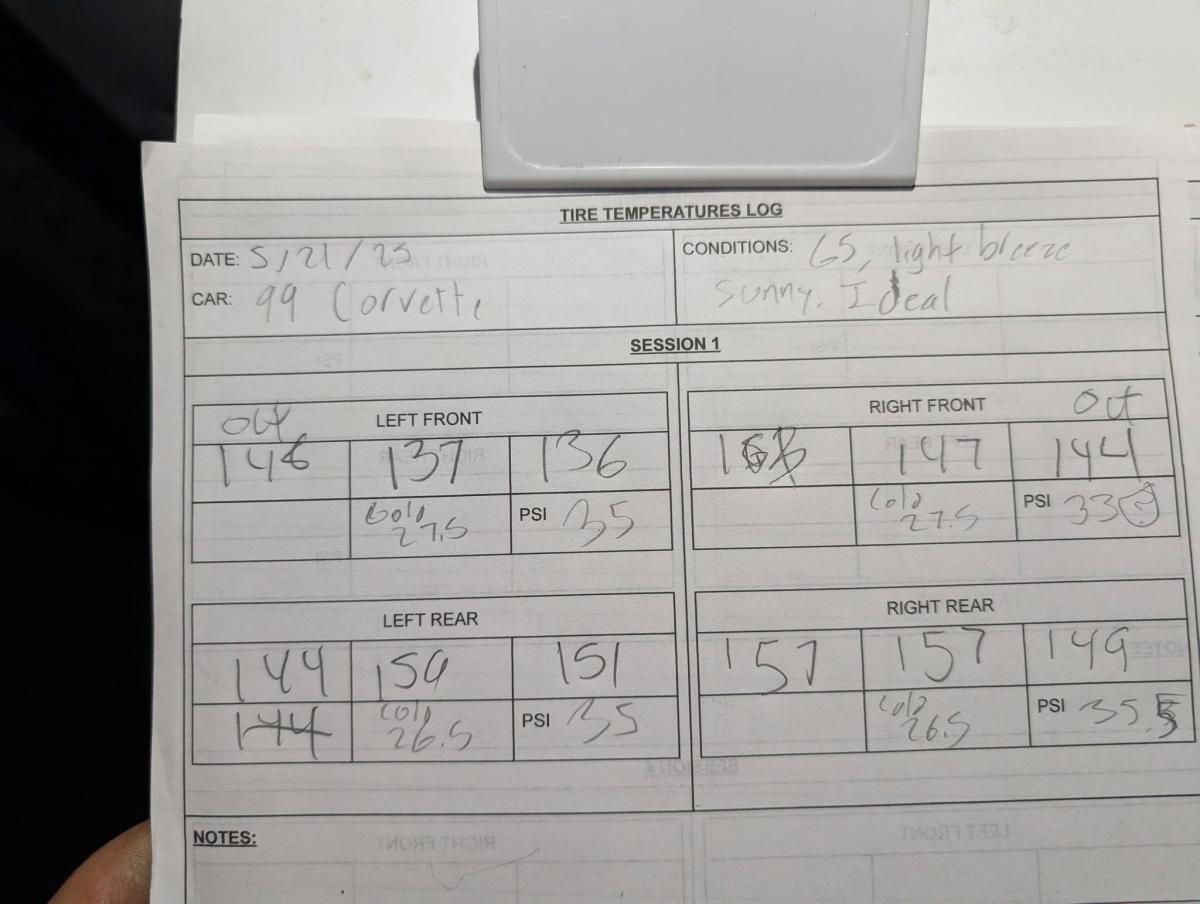 TIRE TEMPERATURES LOG
DATE: 5/21/25
CONDITIONS: 65, light breeze
CAR: 99 Corvette
Sunny. Ideal
SESSION 1
out LEFT FRONT
RIGHT FRONT out
146 137 136
147 144
Cold
27.5
PSI 35
Cold
27.5
PSI 33
LEFT REAR
RIGHT REAR
144 150 151
157 157 149
144
Cold
26.5
PSI 35
Cold
26.5
PSI 35.5
NOTES: